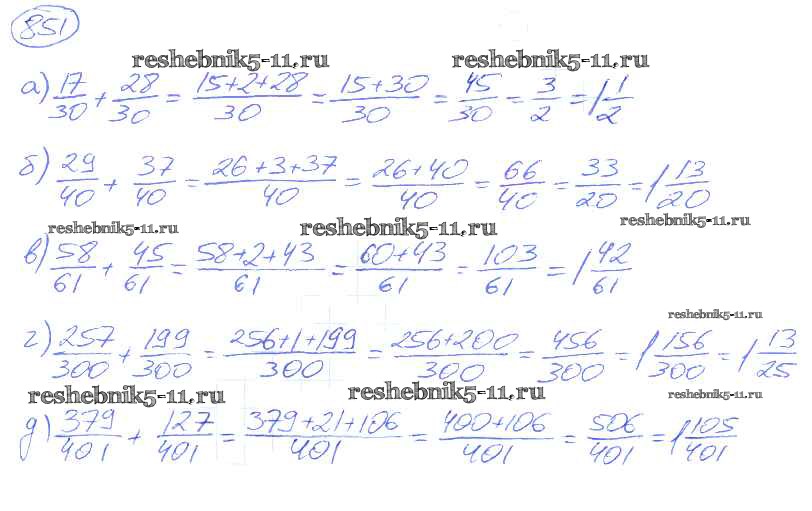 851
reshebnik5-11.ru reshebnik5-11.ru
а) 17/30 + 28/30 = (15+2+28)/30 = (15+30)/30 = 45/30 = 3/2 = 1 1/2
б) 29/40 + 37/40 = (26+3+37)/40 = (26+40)/40 = 66/40 = 33/20 = 1 13/20
reshebnik5-11.ru reshebnik5-11.ru reshebnik5-11.ru
в) 58/61 + 45/61 = (58+2+43)/61 = (60+43)/61 = 103/61 = 1 42/61
reshebnik5-11.ru
г) 257/300 + 199/300 = (256+1+199)/300 = (256+200)/300 = 456/300 = 1 156/300 = 1 13/25
reshebnik5-11.ru reshebnik5-11.ru reshebnik5-11.ru
д) 379/401 + 127/401 = (379+21+106)/401 = (400+106)/401 = 506/401 = 1 105/401